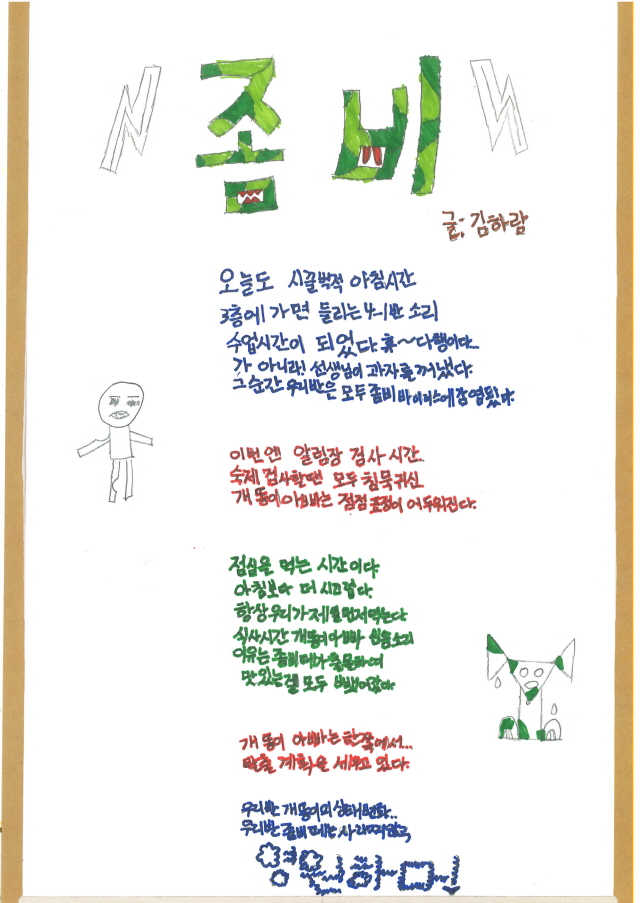 좀비
글: 김하람
오늘도 시끌벅적 아침시간
3층에 가면 들리는 4-1반 소리
수업시간이 되었다 휴~다행이다...
가 아니라! 선생님이 과자를 꺼냈다.
그순간 우리반은 모두 좀비 바이러스에 감염됐다.
이번엔 알림장 검사 시간..
숙제 검사할땐 모두 침묵귀신
개똥이 아빠는 점점 표정이 어두워진다.
점심을 먹는 시간이다.
아침보다 더 시끄럽다.
항상 우리가 제일 먼저 먹는다
식사시간 개똥이 아빠 한숨소리
이유는 좀비떼가 출몰하여
맛있는걸 모두 빼앗아갔다.
개똥이 아빠는 한쪽에서...
탈출 계획을 세우고 있다.
우리반 개똥이의 상태변화..
우리반 좀비떼는 사라지지않고,
영원하다!